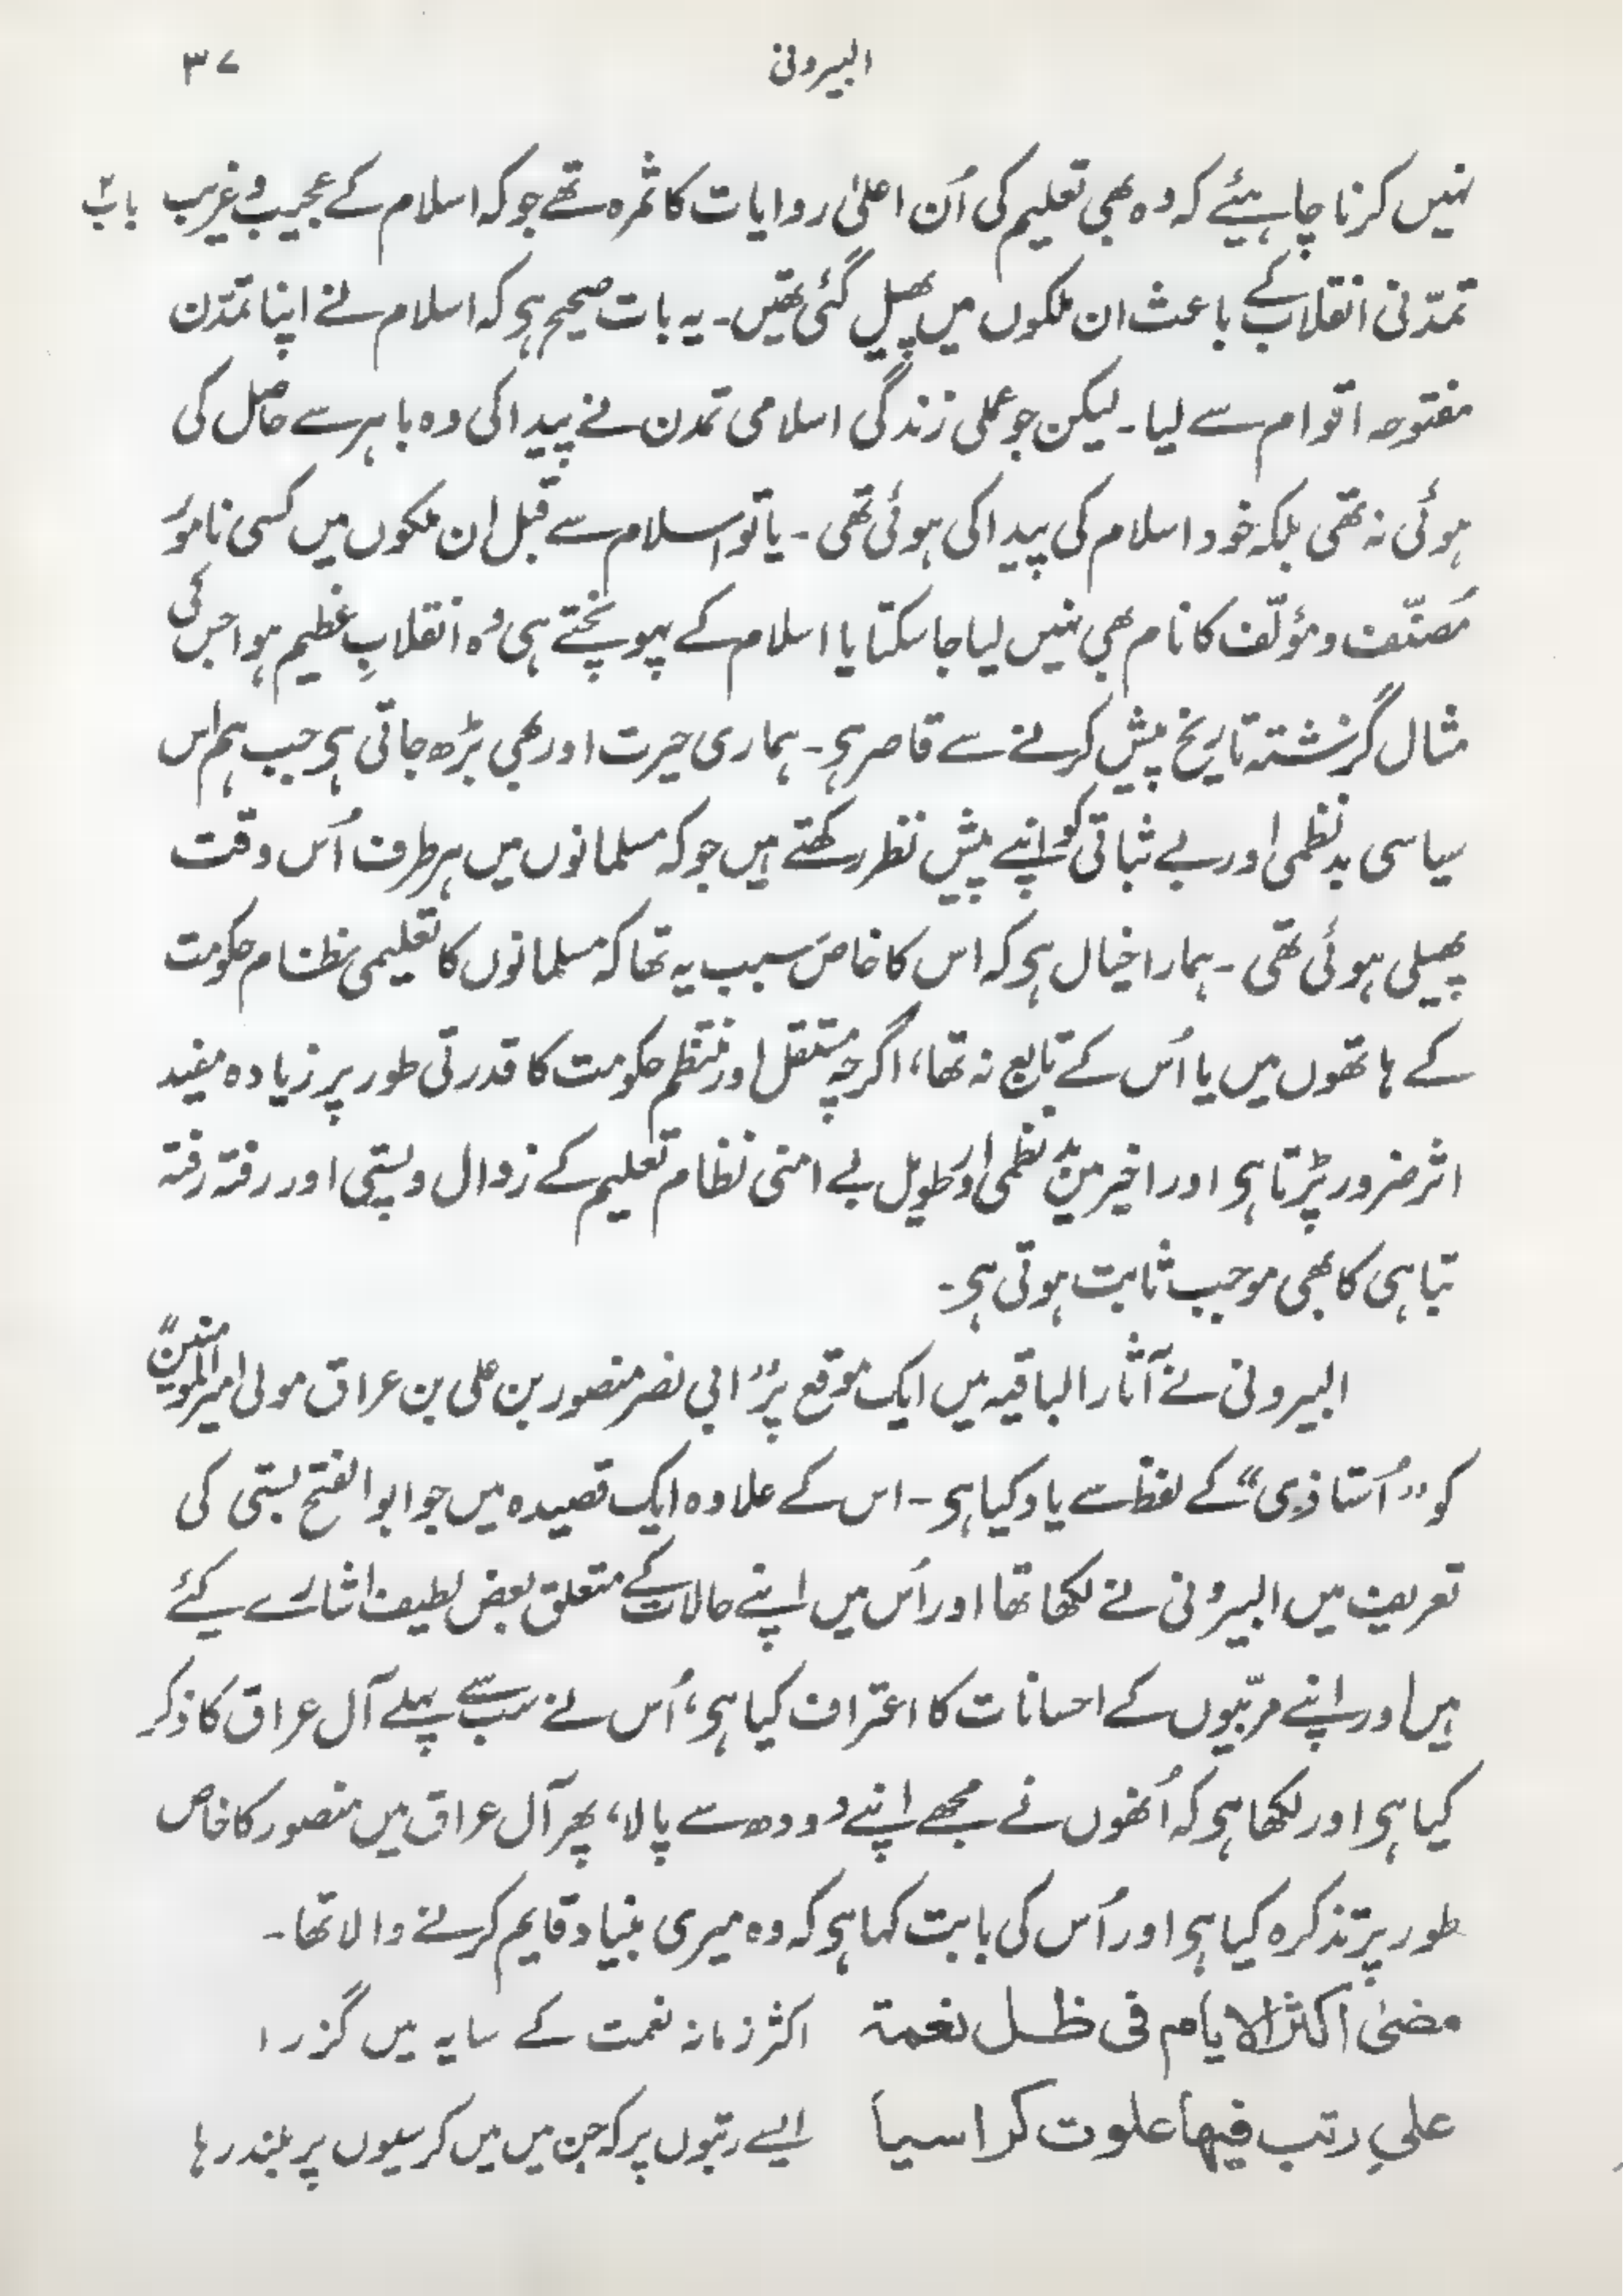 البیرونی ۳۷
نہیں کرنا چاہیئے کہ وہ بھی تعلیم کی اُن اعلیٰ روایات کا ثمرہ تھے جو کہ اسلام کے عجیب و غریب باب
تمدّنی انقلاب کے باعث ان ملکوں میں پھیل گئی تھیں۔ یہ بات صحیح ہی کہ اسلام نے اپنا تمدّن
مفتوحہ اقوام سے لیا۔ لیکن جو عملی زندگی اسلامی تمدن نے پیدا کی وہ باہر سے حاصل کی
ہوئی نہ تھی بلکہ خود اسلام کی پیدا کی ہوئی تھی ۔ یا تو اسلام سے قبل ان ملکوں میں کسی نامور
مُصنّف و مؤلّف کا نام بھی نہیں لیا جا سکتا یا اسلام کے پہونچتے ہی وہ انقلابِ عظیم ہوا جس کی
مثال گزشتہ تاریخ پیش کرنے سے قاصر ہی۔ ہماری حیرت اور بھی بڑھ جاتی ہی جب ہم اس
سیاسی بدنظمی اور بے ثباتی کو اپنے پیش نظر رکھتے ہیں جو کہ مسلمانوں میں ہر طرف اُس وقت
پھیلی ہوئی تھی ۔ ہمارا خیال ہی کہ اس کا خاص سبب یہ تھا کہ مسلمانوں کا تعلیمی نظام حکومت
کے ہاتھوں میں یا اُس کے تابع نہ تھا، اگرچہ مستقل اور منتظم حکومت کا قدرتی طور پر زیادہ مفید
اثر ضرور پڑتا ہی اور اخیر میں بدنظمی اور طویل بے امنی نظام تعلیم کے زوال و پستی اور رفتہ رفتہ
تباہی کا بھی موجب ثابت ہوتی ہی۔
البیرونی نے آثار الباقیہ میں ایک موقع پر "ابی نصر منصور بن علی بن عراق مولیٰ امیر المومنین"
کو "اُستاذی" کے لفظ سے یاد کیا ہی ۔ اس کے علاوہ ایک قصیدہ میں جو ابوالفتح بستی کی
تعریف میں البیرونی نے لکھا تھا اور اُس میں اپنے حالات کے متعلق بعض لطیف اشارے کیئے
ہیں اور اپنے مربّیوں کے احسانات کا اعتراف کیا ہی، اُس نے سب سے پہلے آل عراق کا ذکر
کیا ہی اور لکھا ہی کہ اُنھوں نے مجھے اپنے دودھ سے پالا، پھر آل عراق میں منصور کا خاص
طور پر تذکرہ کیا ہی اور اُس کی بابت کہا ہی کہ وہ میری بنیاد قایم کرنے والا تھا۔
مضیٰ اکثر الایام فی ظل نعمة اکثر زمانہ نعمت کے سایہ میں گزرا
علی رتب فیها علوت کراسیا ایسے رتبوں پر کہ جن میں میں کرسیوں پر بلند رہا